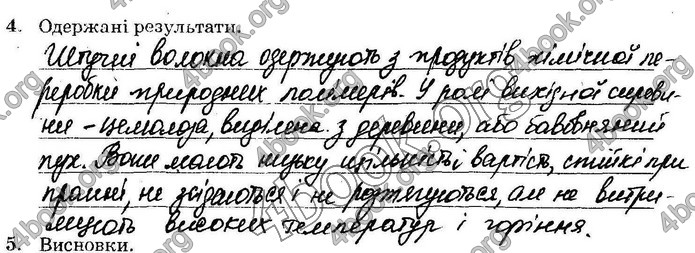 4. Одержані результати.
Штучні волокна одержують з продуктів хімічної пе-
реробки природних полімерів. У ролі вихідної сирови-
ни - целюлоза, виділена з деревини, або бавовняний
пух. Вони мають низьку щільність і вартість, стійкі при
пранні, не зсідаються і не розтягуються, але не витри-
мують високих температур і горіння.
5. Висновки.
4book.org